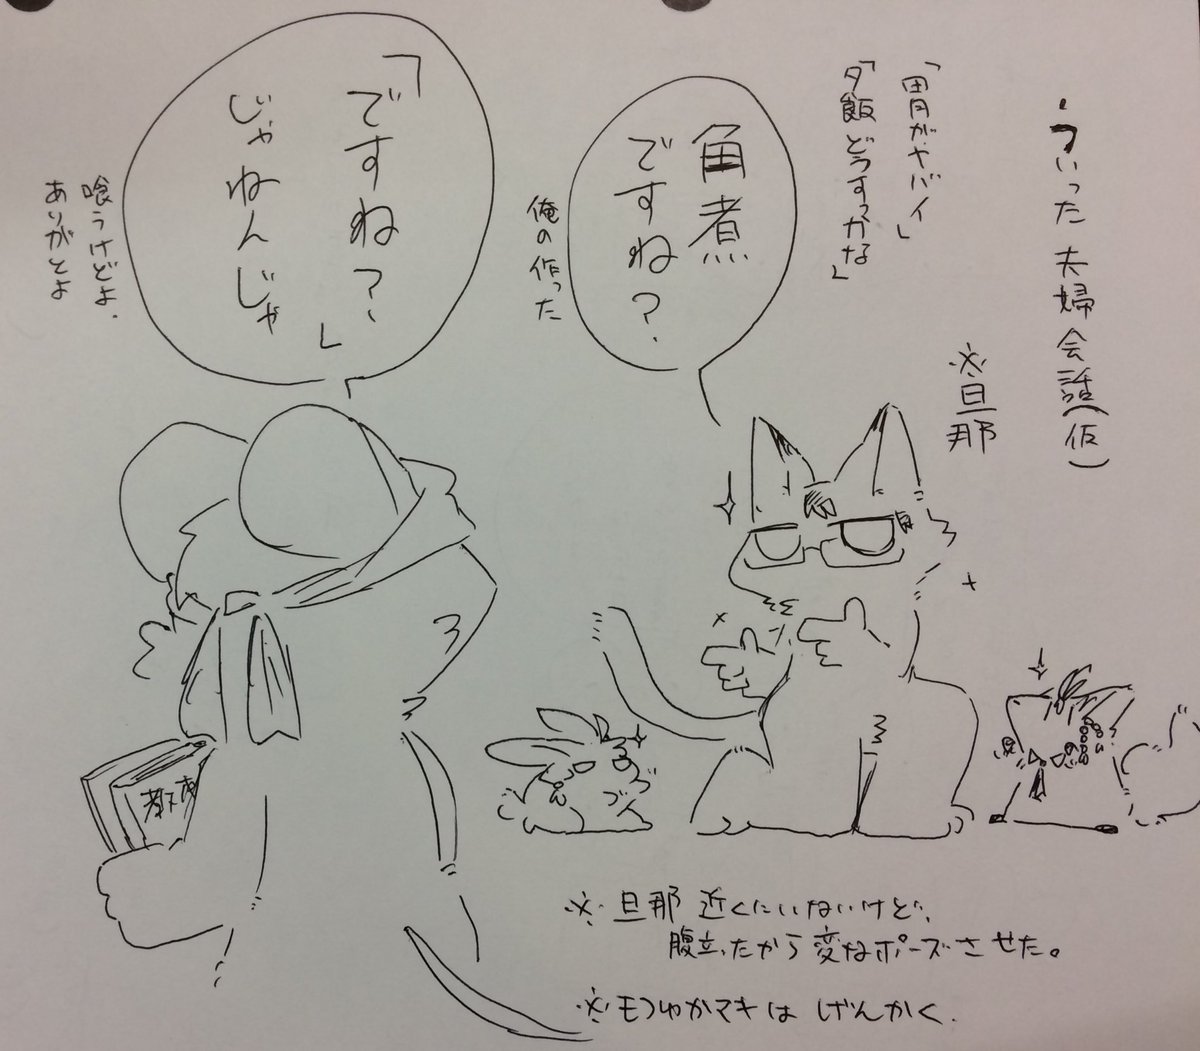 ・ついった夫婦会話(仮)
※旦那
「胃がヤバイ」
「夕飯どうすっかな」
角煮
ですね?
俺の作った
「ですね?
じゃねんじゃ」
喰うけどよ.
ありがとよ
※旦那近くにいないけど、
腹立ったから変なポーズさせた。
※モフゆかマキはげんかく.